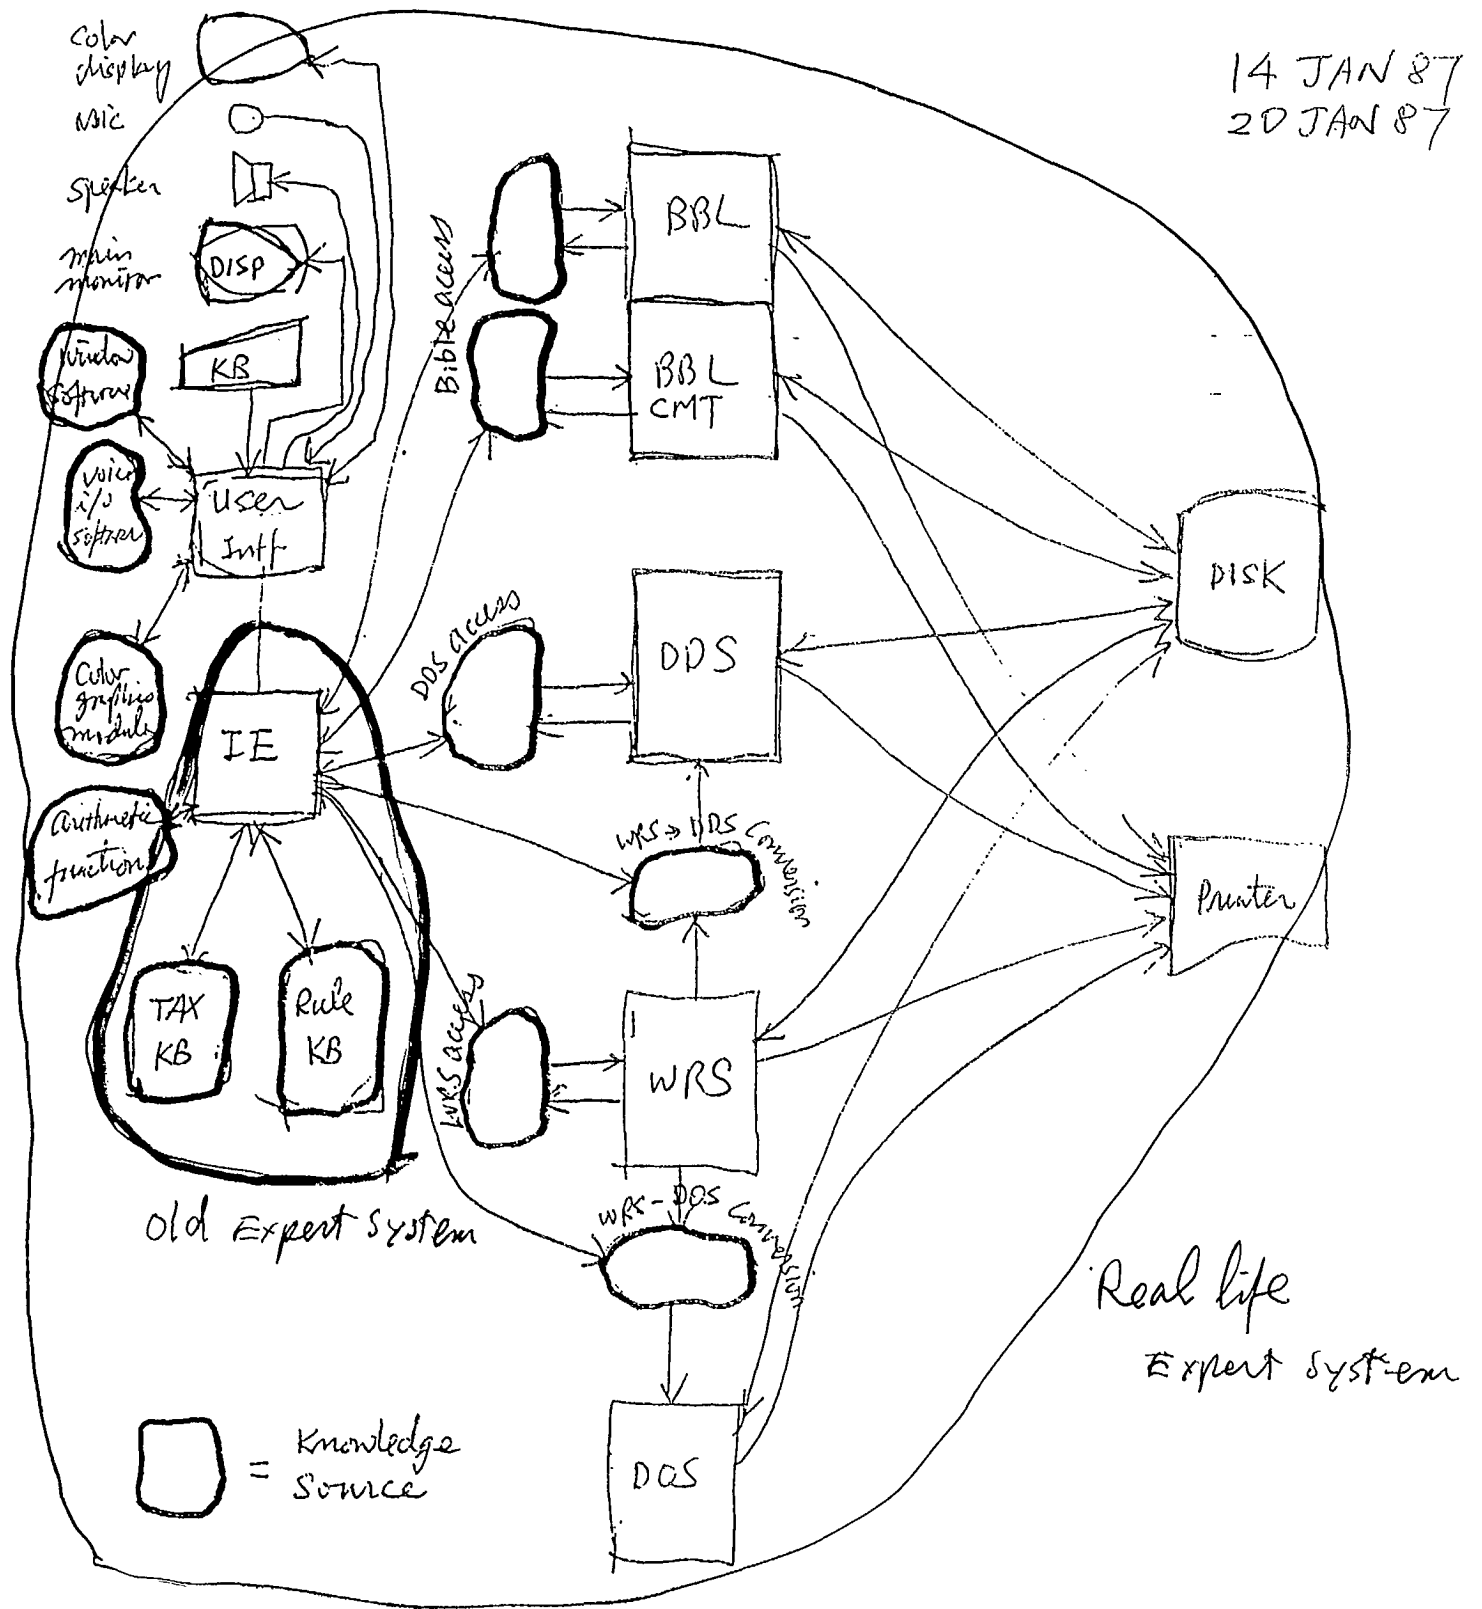 Color
display
14 JAN 87
20 JAN 87
Mic
speaker
main
monitor
DISP
KB
Window
Software
Voice
i/o
software
User
Intf
Color
graphics
module
Arithmetic
function
IE
TAX
KB
Rule
KB
Old Expert System
Bible access
BBL
BBL
CMT
DDS access
DDS
WRS→DDS Conversion
WRS access
WRS
WRS-DOS Conversion
DOS
DISK
Printer
Real life
Expert System
= Knowledge
Source